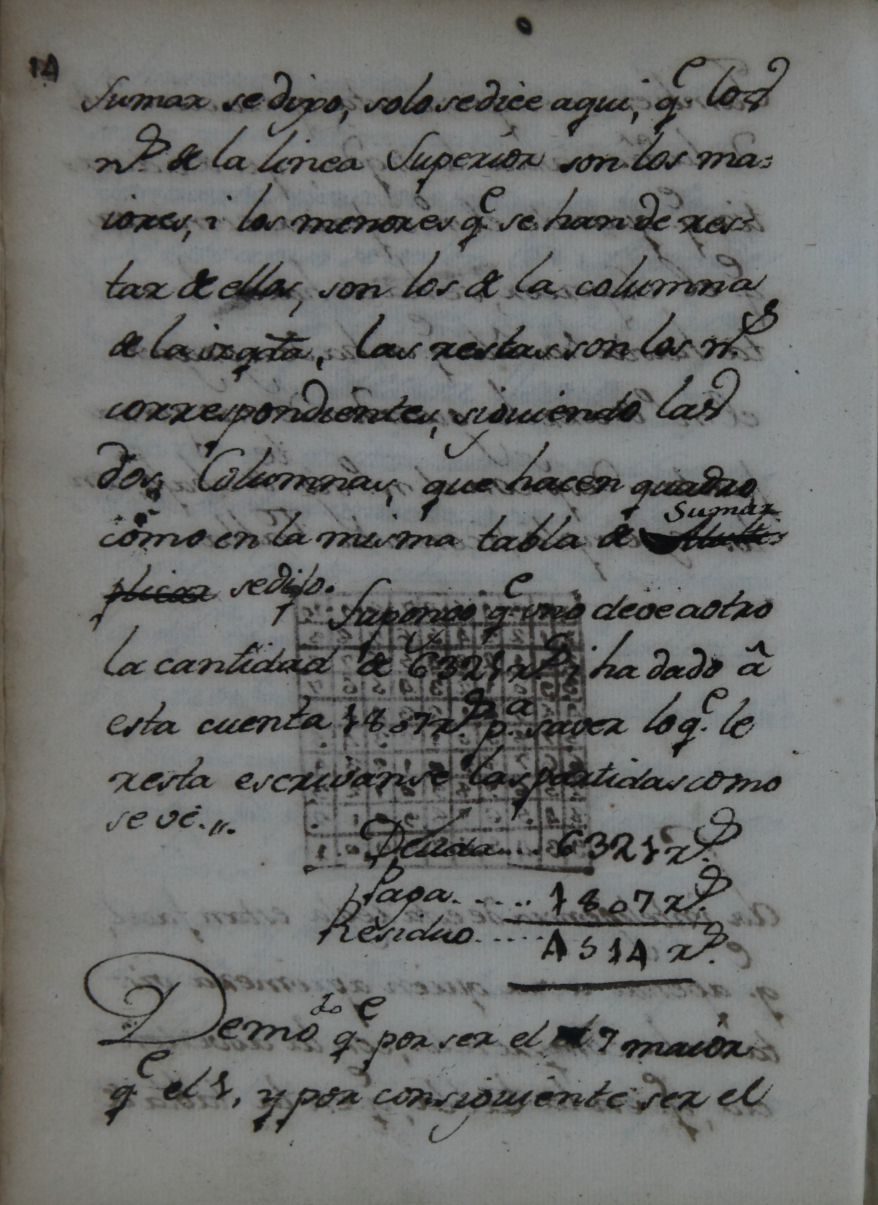 14
Sumar se dijo, solo se dice aqui, q.e los
n.s de la linea Superior son los ma=
iores, i los menores q.e se han de res=
tar de ellos, son los de la columna
de la izq.ta, las restas son los n.s
correspondientes, siguiendo las
dos Columnas, que hacen quadro
como en la misma tabla de Sumar
se dijo.
Supongo q.e uno deve a otro
la cantidad de 6321 r.s i ha dado â
esta cuenta 1807 r.s p.a saver lo q.e le
resta escrivanse las partidas como
se vé.,,
Deuda.... 6321 r.s
Paga...... 1807 r.s
Residuo..... 4514 r.s
Demo do q.e por ser el 7 maior
q.e el 1, y por consiguiente ser el